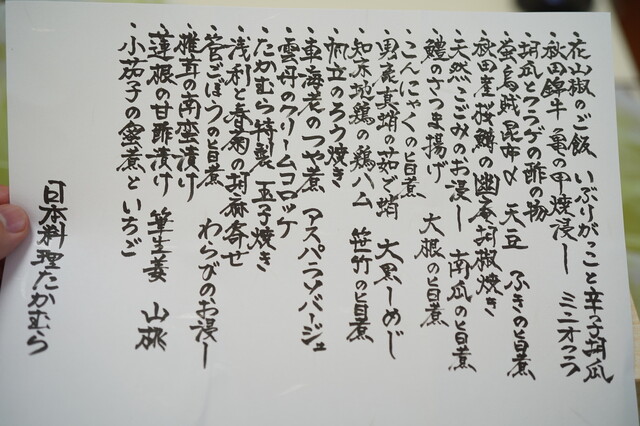 ・花山椒のご飯 いぶりがっこと辛子胡瓜
・秋田錦牛 亀の甲焼浸し ミニオクラ
・胡瓜とクラゲの酢の物
・蛍烏賊昆布〆 天豆 ふきの旨煮
・秋田産桜鱒の幽庵胡椒焼き
・天然こごみのお浸し 南瓜の旨煮
・鱧のさつま揚げ 大根の旨煮
・こんにゃくの旨煮
・男鹿真蛸の茹で蛸 大黒しめじ
・知床地鶏の鶏ハム 笹竹の旨煮
・帆立のろう焼き
・車海老のつや煮 アスパラソバージュ
・雲丹のクリームコロッケ
・たかむら特製 玉子焼き
・浅利と春菊の胡麻寄せ
・管ごぼうの旨煮 わらびのお浸し
・椎茸の南蛮漬け
・蓮根の甘酢漬け 筆生姜 山桃
・小茄子の蜜煮といちご
日本料理たかむら